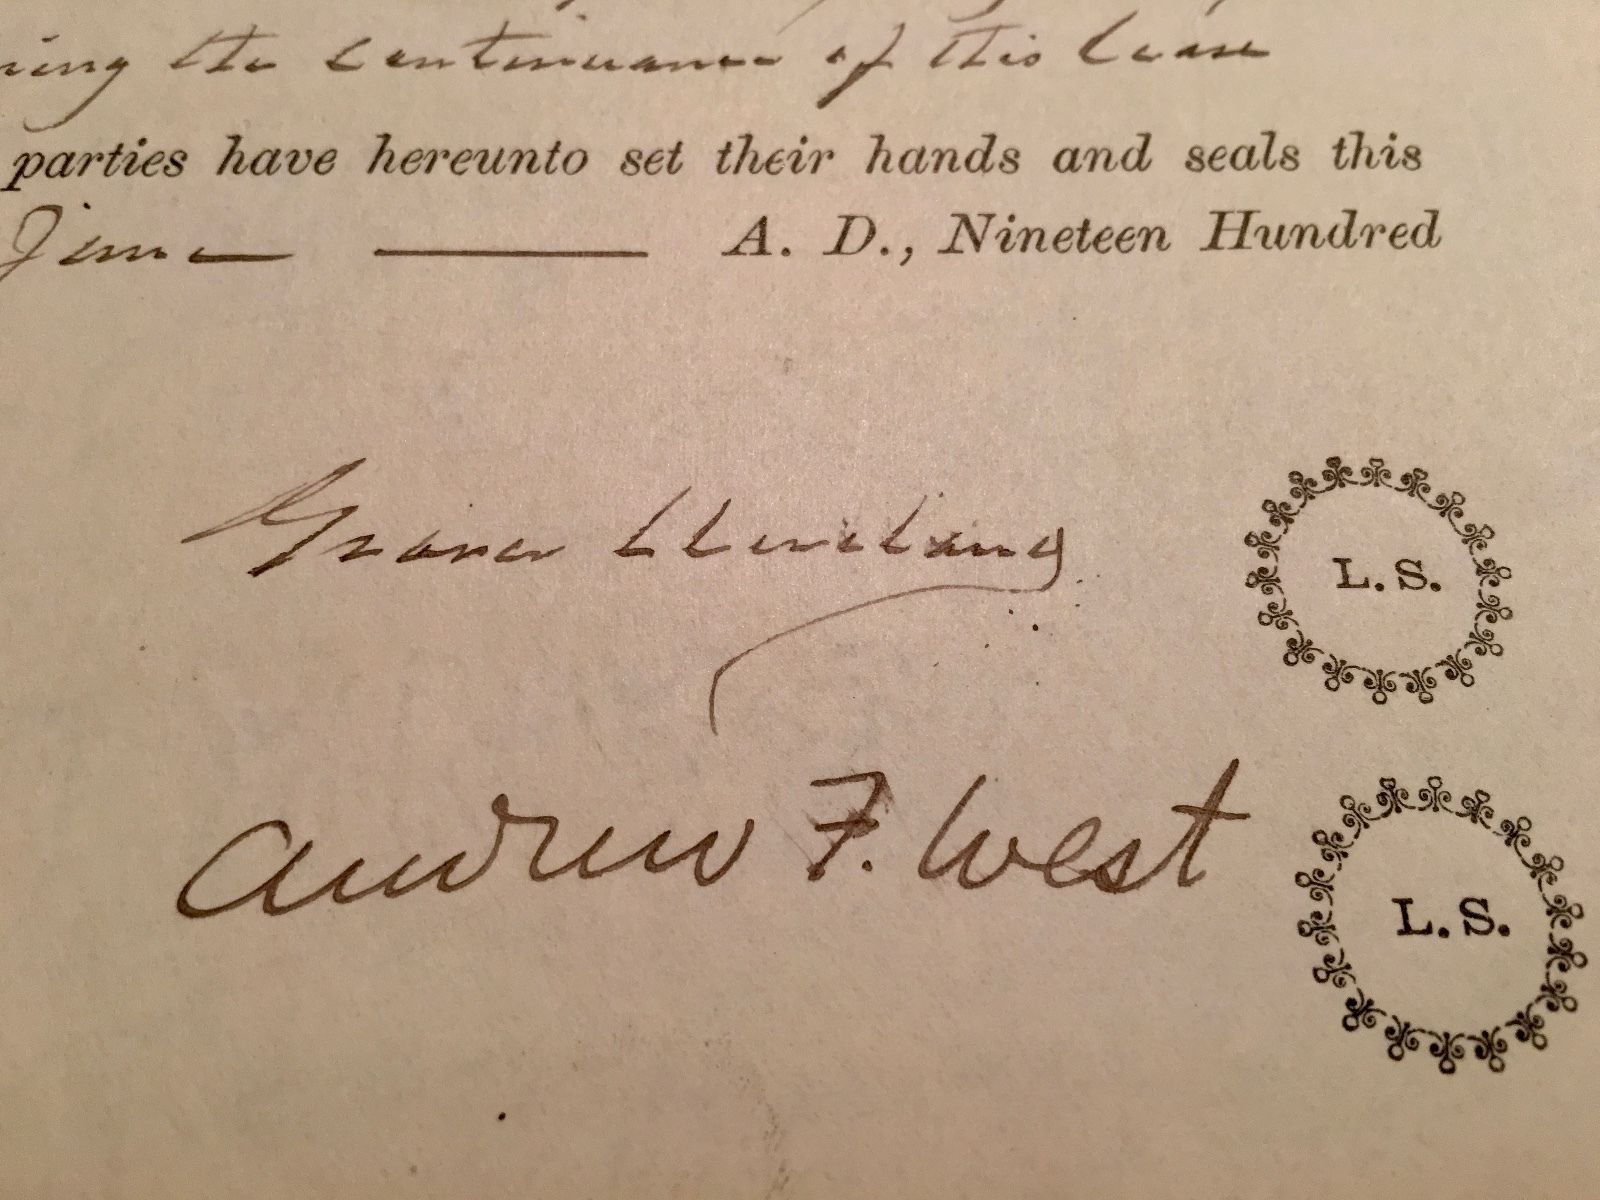 ring the continuance of this lease
parties have hereunto set their hands and seals this
June A. D., Nineteen Hundred
Grover Cleveland L. S.
Andrew F. West L. S.